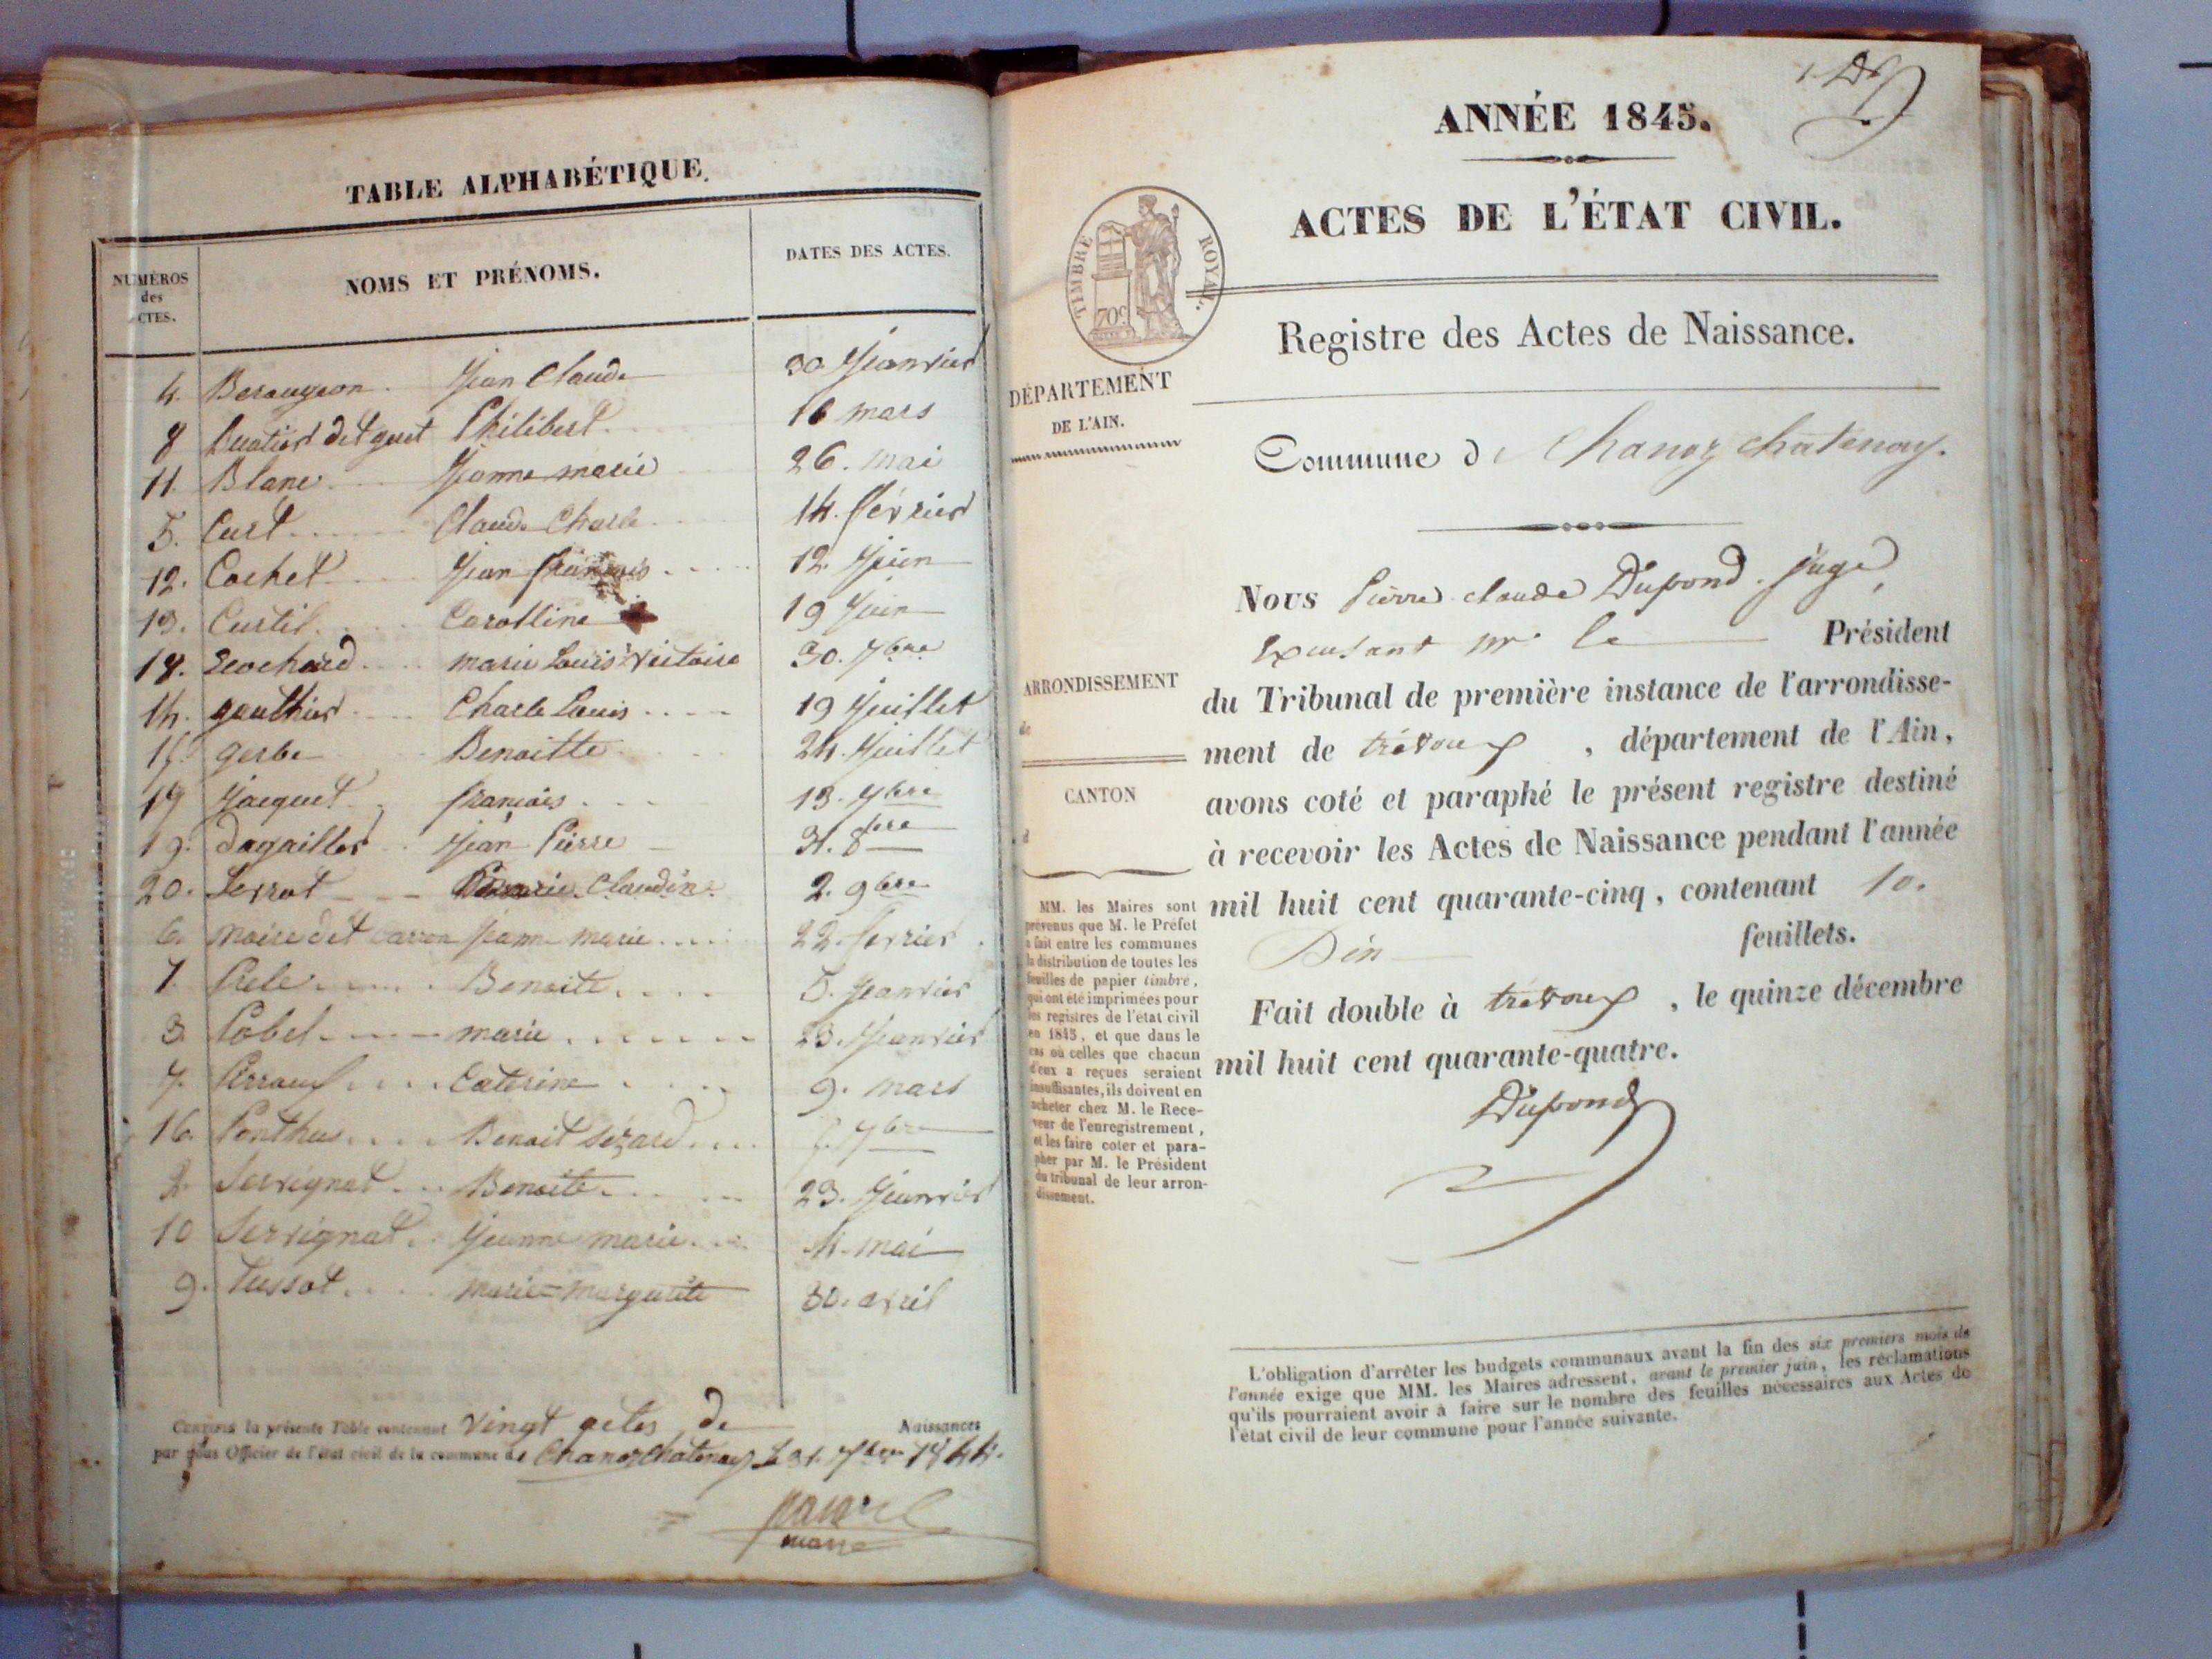 TABLE ALPHABÉTIQUE.
NUMÉROS des CTES.
NOMS ET PRÉNOMS.
DATES DES ACTES.
4. Beraugeon. Jean Claude 30 Janvier
8 dit guet Philibert 16 mars
11. Blanc Jeanne marie 26. mai
5. Curt Claude Charle 14. février
12. Cochet Jean françois 12. Juin
13. Curtil Carolline 19 Juin
18. marie Louis Victoire 30. 7bre
14. gauthier Charle Louis 19 Juillet
15 gerbe Benoitte 24. Juillet
17 Jacquet françois 13. 7bre
19. dagailler Jean Pierre 31. 8bre
20. Serrot Claudine 2. 9bre
6. noire dit carron Jeanne marie 22. fevrier
1. Benoite 5. Janvier
3 Pobel marie 23. Janvier
7. Perraux Caterine 9. mars
16. Ponthus Benoit Sézard 7bre
2. Servignat Benoite 23. Janvier
10 Servignat Jeanne marie 4. mai
9. Tussot marie=marguerite 30. avril
CERTIFIÉ la présente Table contenant vingt actes de Naissances
par nous Officier de l'état civil de la commune de Chanoz Chatenay Le 31. 1844.
maire
ANNÉE 1845.
ACTES DE L'ÉTAT CIVIL.
TIMBRE ROYAL.
70c
Registre des Actes de Naissance.
DÉPARTEMENT
DE L'AIN.
Commune d Chanoz chatenay.
Nous Pierre claude Dupond. juge
excusant mr. le Président
ARRONDISSEMENT
de
du Tribunal de première instance de l'arrondisse-
ment de trévoux, département de l'Ain,
CANTON
d
avons coté et paraphé le présent registre destiné
à recevoir les Actes de Naissance pendant l'année
mil huit cent quarante-cinq, contenant 10.
Dix feuillets.
Fait double à trévoux, le quinze décembre
mil huit cent quarante-quatre.
Dupond
MM. les Maires sont
prévenus que M. le Préfet
a fait entre les communes
la distribution de toutes les
feuilles de papier timbré,
qui ont été imprimées pour
les registres de l'état civil
en 1845, et que dans le
cas où celles que chacun
d'eux a reçues seraient
insuffisantes, ils doivent en
acheter chez M. le Rece-
veur de l'enregistrement,
et les faire coter et para-
pher par M. le Président
du tribunal de leur arron-
dissement.
L'obligation d'arrêter les budgets communaux avant la fin des six premiers mois de
l'année exige que MM. les Maires adressent, avant le premier juin, les réclamations
qu'ils pourraient avoir à faire sur le nombre des feuilles nécessaires aux Actes de
l'état civil de leur commune pour l'année suivante.